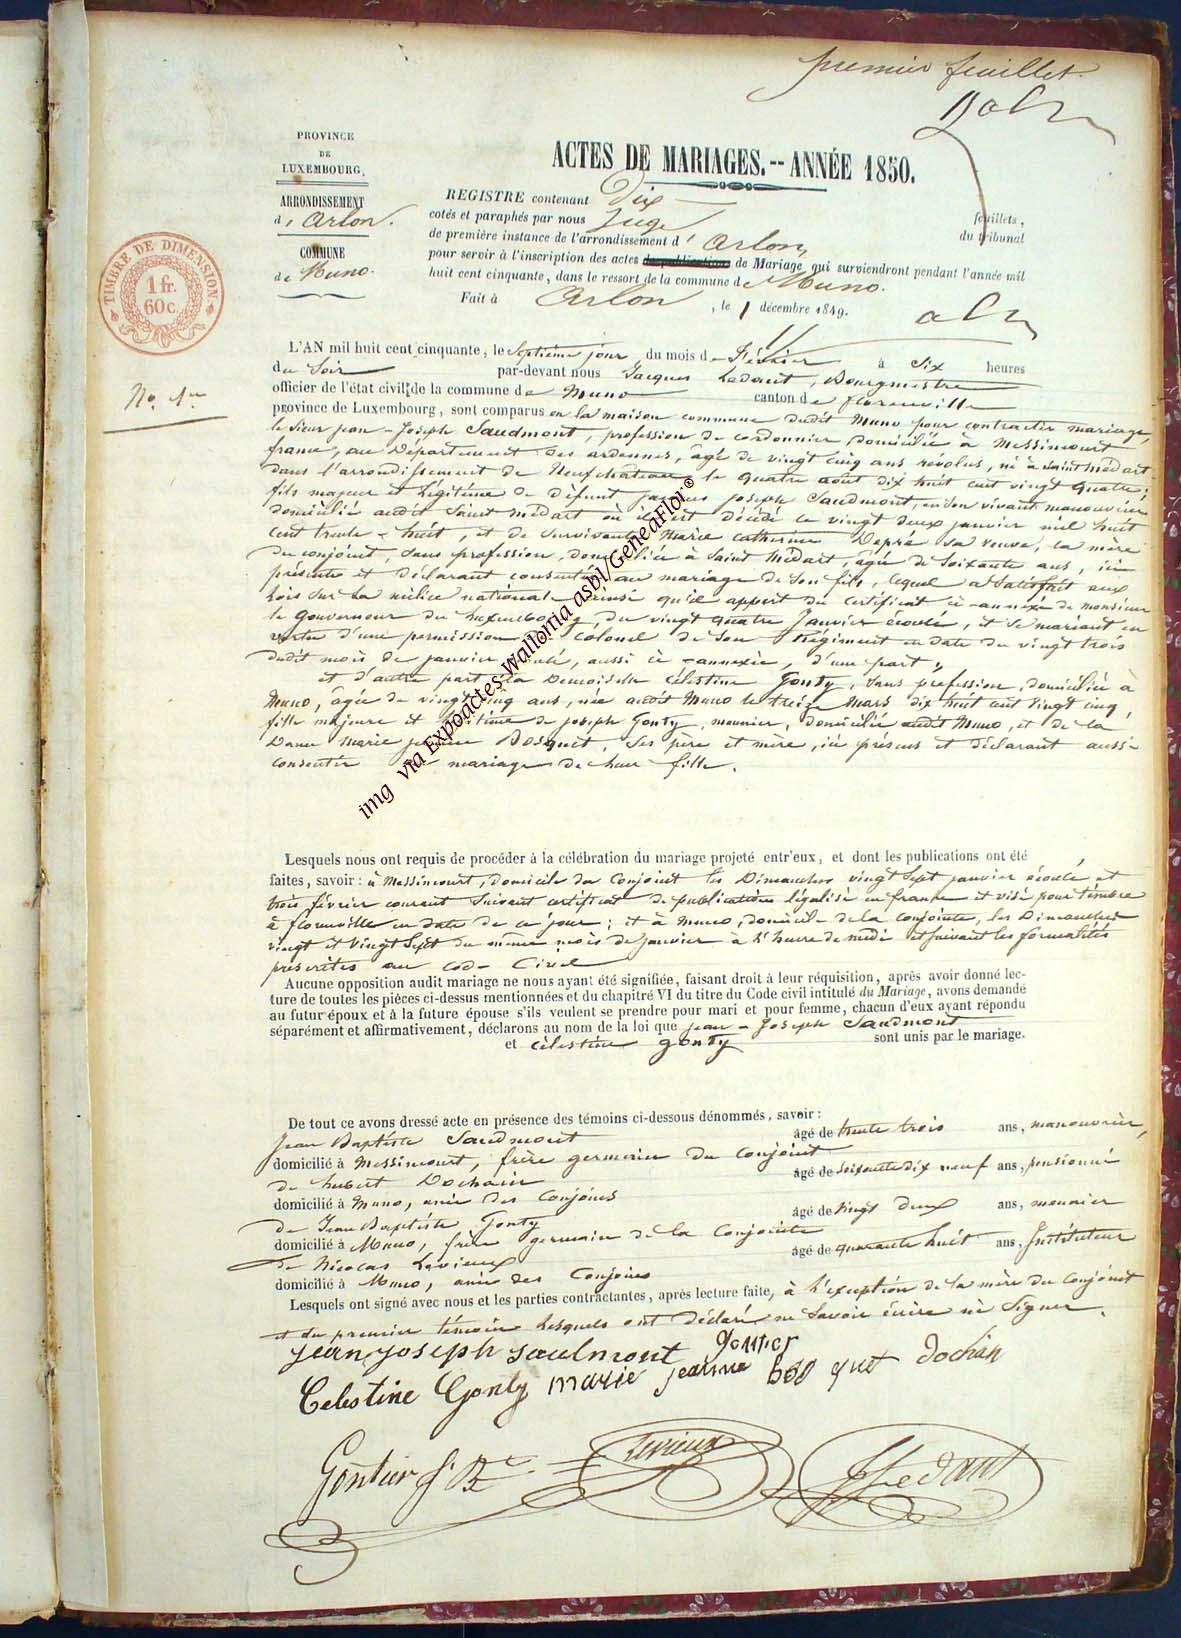 premier feuillet.
PROVINCE
DE
LUXEMBOURG.
ARRONDISSEMENT
d'Arlon.
COMMUNE
de Muno.
TIMBRE DE DIMENSION
1 fr.
60 c.
ACTES DE MARIAGES.-- ANNÉE 1850.
REGISTRE contenant Dix feuillets,
cotés et paraphés par nous Juge du tribunal
de première instance de l'arrondissement d'Arlon,
pour servir à l'inscription des actes de Mariage qui surviendront pendant l'année mil
huit cent cinquante, dans le ressort de la commune de Muno.
Fait à Arlon, le 1 décembre 1849.
No. 1er
L'AN mil huit cent cinquante, le Septième jour du mois de Février à Six heures
du Soir par-devant nous Jacques Ledant, Bourgmestre
officier de l'état civil de la commune de Muno canton de florenville
province de Luxembourg, sont comparus en la maison commune dudit Muno pour contracter mariage,
le Sieur jean-Joseph Saudmont, profession de cordonnier domicilié à Messincourt
france, au Département des ardennes, âgé de vingt cinq ans révolus, né à Saint Médart
dans l'arrondissement de Neufchateau le quatre août dix huit cent vingt quatre;
fils majeur et légitime de défunt jacques joseph Saudmont, en son vivant manouvrier
domicilié audit Saint Médart où il est décédé le vingt deux janvier mil huit
cent trente-huit, et de Survivante Marie Catherine Depré Sa veuve, la mère
du conjoint, Sans profession, domiciliée à Saint Médart, âgée de Soixante ans, ici
présente et déclarant consentir au mariage de Son fils, lequel a Satisfait aux
lois Sur la milice nationale ainsi qu'il appert du certificat ci-annexé de monsieur
le Gouverneur du Luxembourg, du vingt quatre Janvier écoulé, et Se mariant en
vertu d'une permission du Colonel de Son Régiment en date du vingt trois
dudit mois de janvier écoulé, aussi ci-annexée, d'une part,
et d'autre part la Demoiselle Célestine Gonty, Sans profession, domiciliée à
Muno, âgée de vingt cinq ans, née audit Muno le treize Mars dix huit cent vingt cinq,
fille majeure et légitime de joseph Gonty, meunier, domicilié audit Muno, et de la
Dame Marie jeanne Bosquet, Ses père et mère, ici présens et déclarant aussi
consentir au mariage de leur fille.
img via Expoactes-Wallonia asbl/GeneaFloi®
Lesquels nous ont requis de procéder à la célébration du mariage projeté entr'eux, et dont les publications ont été
faites, savoir: à Messincourt, domicile du Conjoint les Dimanches vingt Sept janvier écoulé et
trois février courant Suivant certificat de publications légalisé en france et visé pour timbre
à florenville en date de ce jour; et à Muno, domicile de la conjointe, les Dimanches
vingt et vingt Sept du même mois de janvier à l'heure de midi et suivant les formalités
prescrites au Code Civil
Aucune opposition audit mariage ne nous ayant été signifiée, faisant droit à leur réquisition, après avoir donné lec-
ture de toutes les pièces ci-dessus mentionnées et du chapitre VI du titre du Code civil intitulé du Mariage, avons demandé
au futur époux et à la future épouse s'ils veulent se prendre pour mari et pour femme, chacun d'eux ayant répondu
séparément et affirmativement, déclarons au nom de la loi que jean-Joseph Saudmont
et Célestine Gonty sont unis par le mariage.
De tout ce avons dressé acte en présence des témoins ci-dessous dénommés, savoir:
Jean Baptiste Saudmont âgé de trente trois ans, manouvrier,
domicilié à Messincourt, frère germain du Conjoint
de hubert Dochain âgé de soixante dix neuf ans, pensionné
domicilié à Muno, ami des Conjoins
de Jean Baptiste Gonty âgé de Vingt deux ans, meunier
domicilié à Muno, frère germain de la Conjointe
de Nicolas Levieux âgé de quarante huit ans, Instituteur
domicilié à Muno, ami des Conjoins
Lesquels ont signé avec nous et les parties contractantes, après lecture faite, à l'exception de la mère du conjoint
et du premier témoin lesquels ont déclaré ne Savoir écrire ni Signer.
jean joseph saulmont gontier
Celestine Gonty marie jeanne bosquet dochin
Gontier J. Bte Levieux JLedant